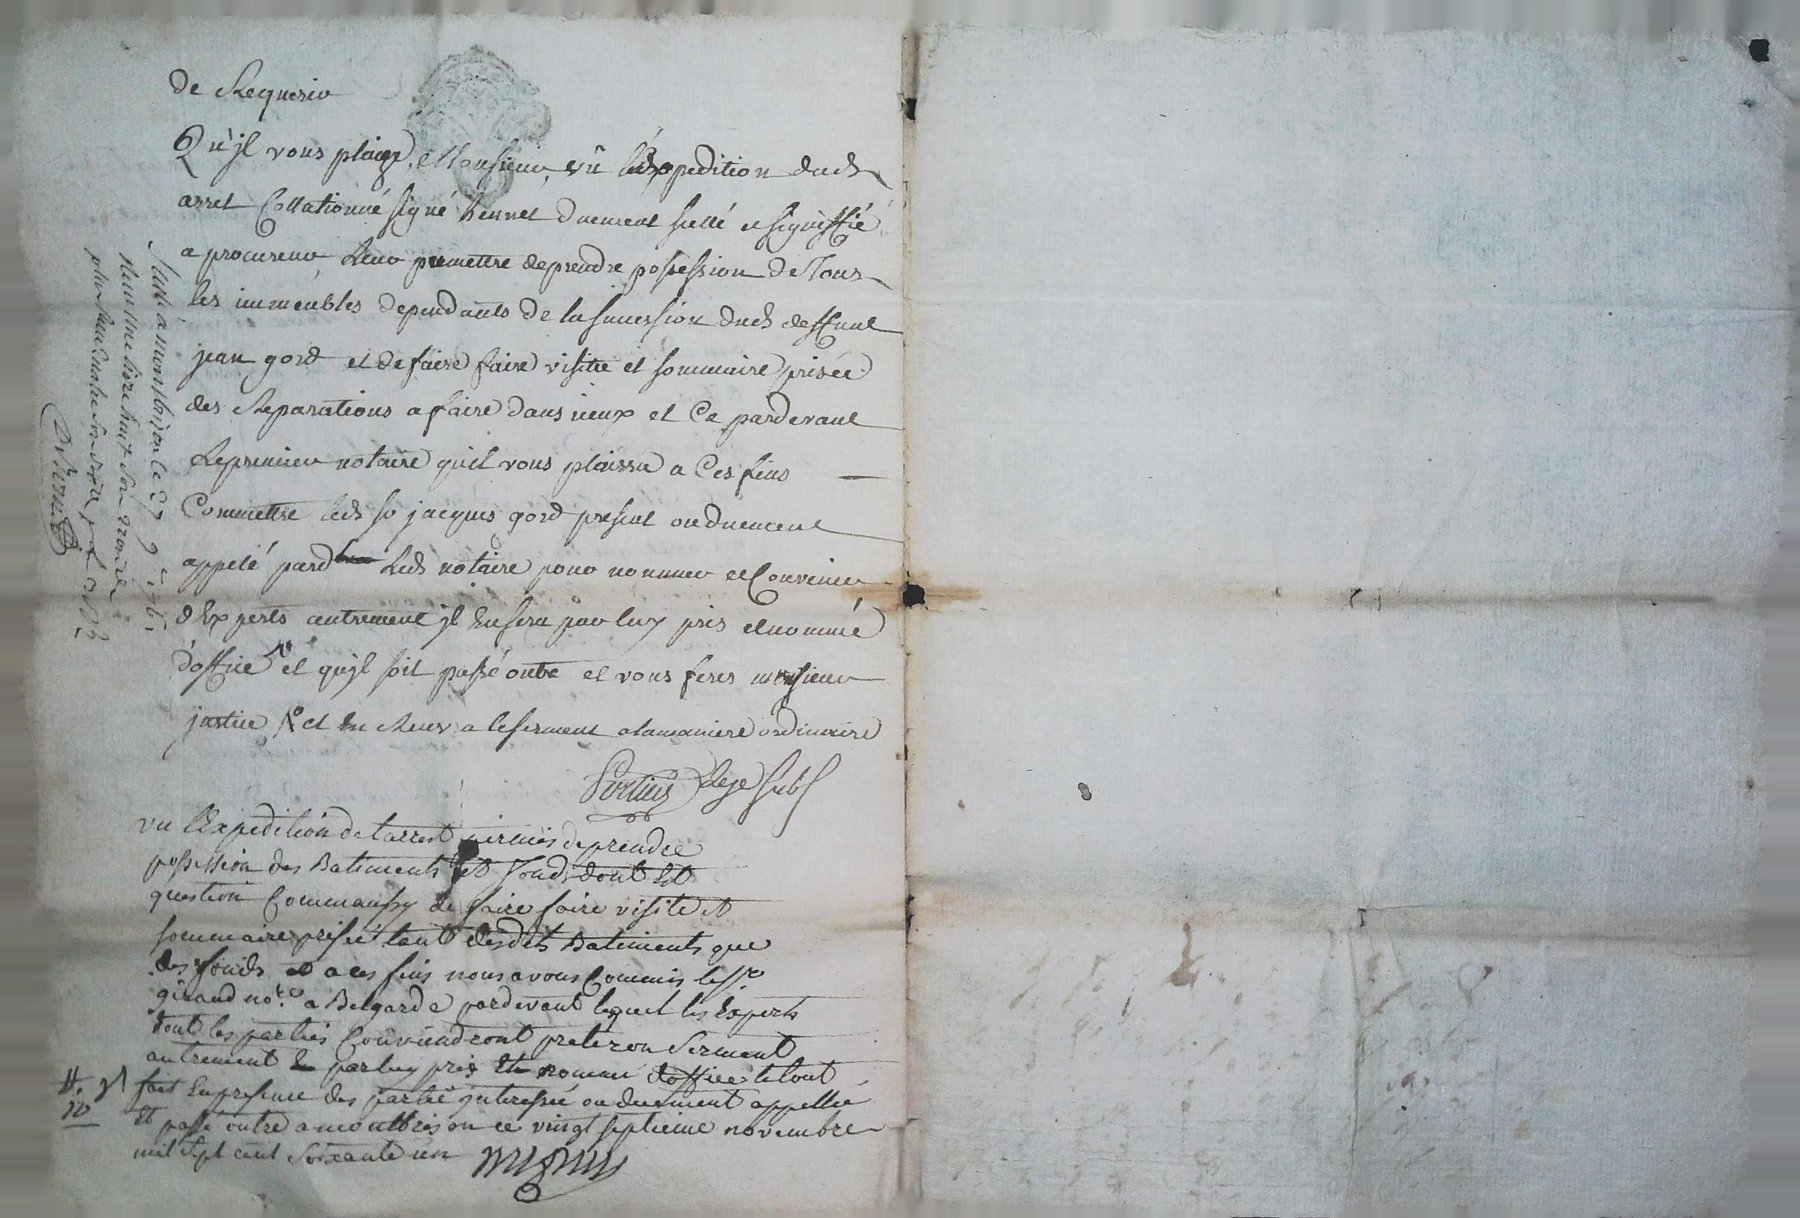 de Requerir
Qu'jl vous plaise, Monsieur, vû l'Expedition dud
arret Collationné signé Bennet duement scellé et signiffié
a procureur Leur permettre de prendre possession de Tous
les immeubles dependants de la succession dud deffunt
jean gord et de faire faire visitte et sommaire prisée
des Reparations a faire dans iceux et Ce pardevant
Le premier notaire qu'il vous plaira a Ces fins
Commettre led sr jacques gord present ou duement
appelé pard Led notaire pour nommer et Convenir
d'Experts autrement jl En sera par luy pris et nommé
d'office et qu'jl soit passé outre et vous feres monsieur
justice & et En Recevra le serment a la maniere ordinaire
subs
vu l'Expedition de l'arrest permis de prendre
possession des Batiments et fonds dont Est
question Comme aussy de faire faire visite et
sommaire prisée tant desdits Batiments que
des fonds et a ces fins nous avons Commis le sr
girand not.e a Belgarde pardevant lequel les Experts
dont les parties Conviendront preteron serment
autrement par luy pris Et nommé d'office le tout
fait En presence des partie jnteressée ou duement appellée
Et passé outre a montbrison ce vingt septieme novembre
mil sept cent soixante un
Scellé à montbrison le 27 9.e 1761